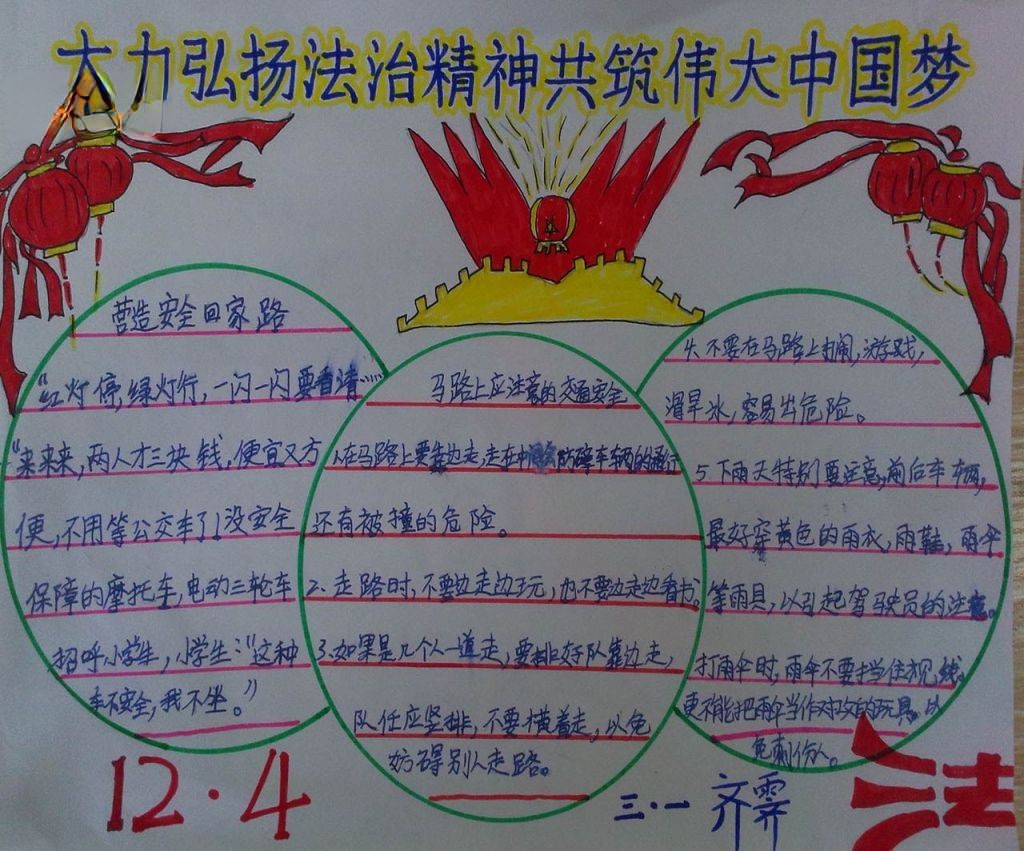 大力弘扬法治精神共筑伟大中国梦
营造安全回家路
“红灯停,绿灯行,一闪一闪要看清……
“来来来,两人才三块钱,便宜又方
便,不用等公交车了!没安全
保障的摩托车,电动三轮车
招呼小学生,小学生:“这种
车不安全,我不坐。”
马路上应注意的交通安全
1.在马路上要靠边走,走在中 妨碍车辆的通行
还有被撞的危险。
2、走路时,不要边走边玩,也不要边走边看书。
3.如果是几个人一道走,要排好队靠边走,
队任应竖排,不要横着走,以免
妨碍别人走路。
4、不要在马路上打闹,游戏,
滑旱冰,容易出危险。
5 下雨天特别要注意,前后车辆,
最好穿黄色的雨衣,雨鞋,雨伞
等雨具,以引起驾驶员的注意。
打雨伞时,雨伞不要挡住视线,
更不能把雨伞当作对攻的玩具,以
免刺伤人。
12·4
三·一 齐霁
法